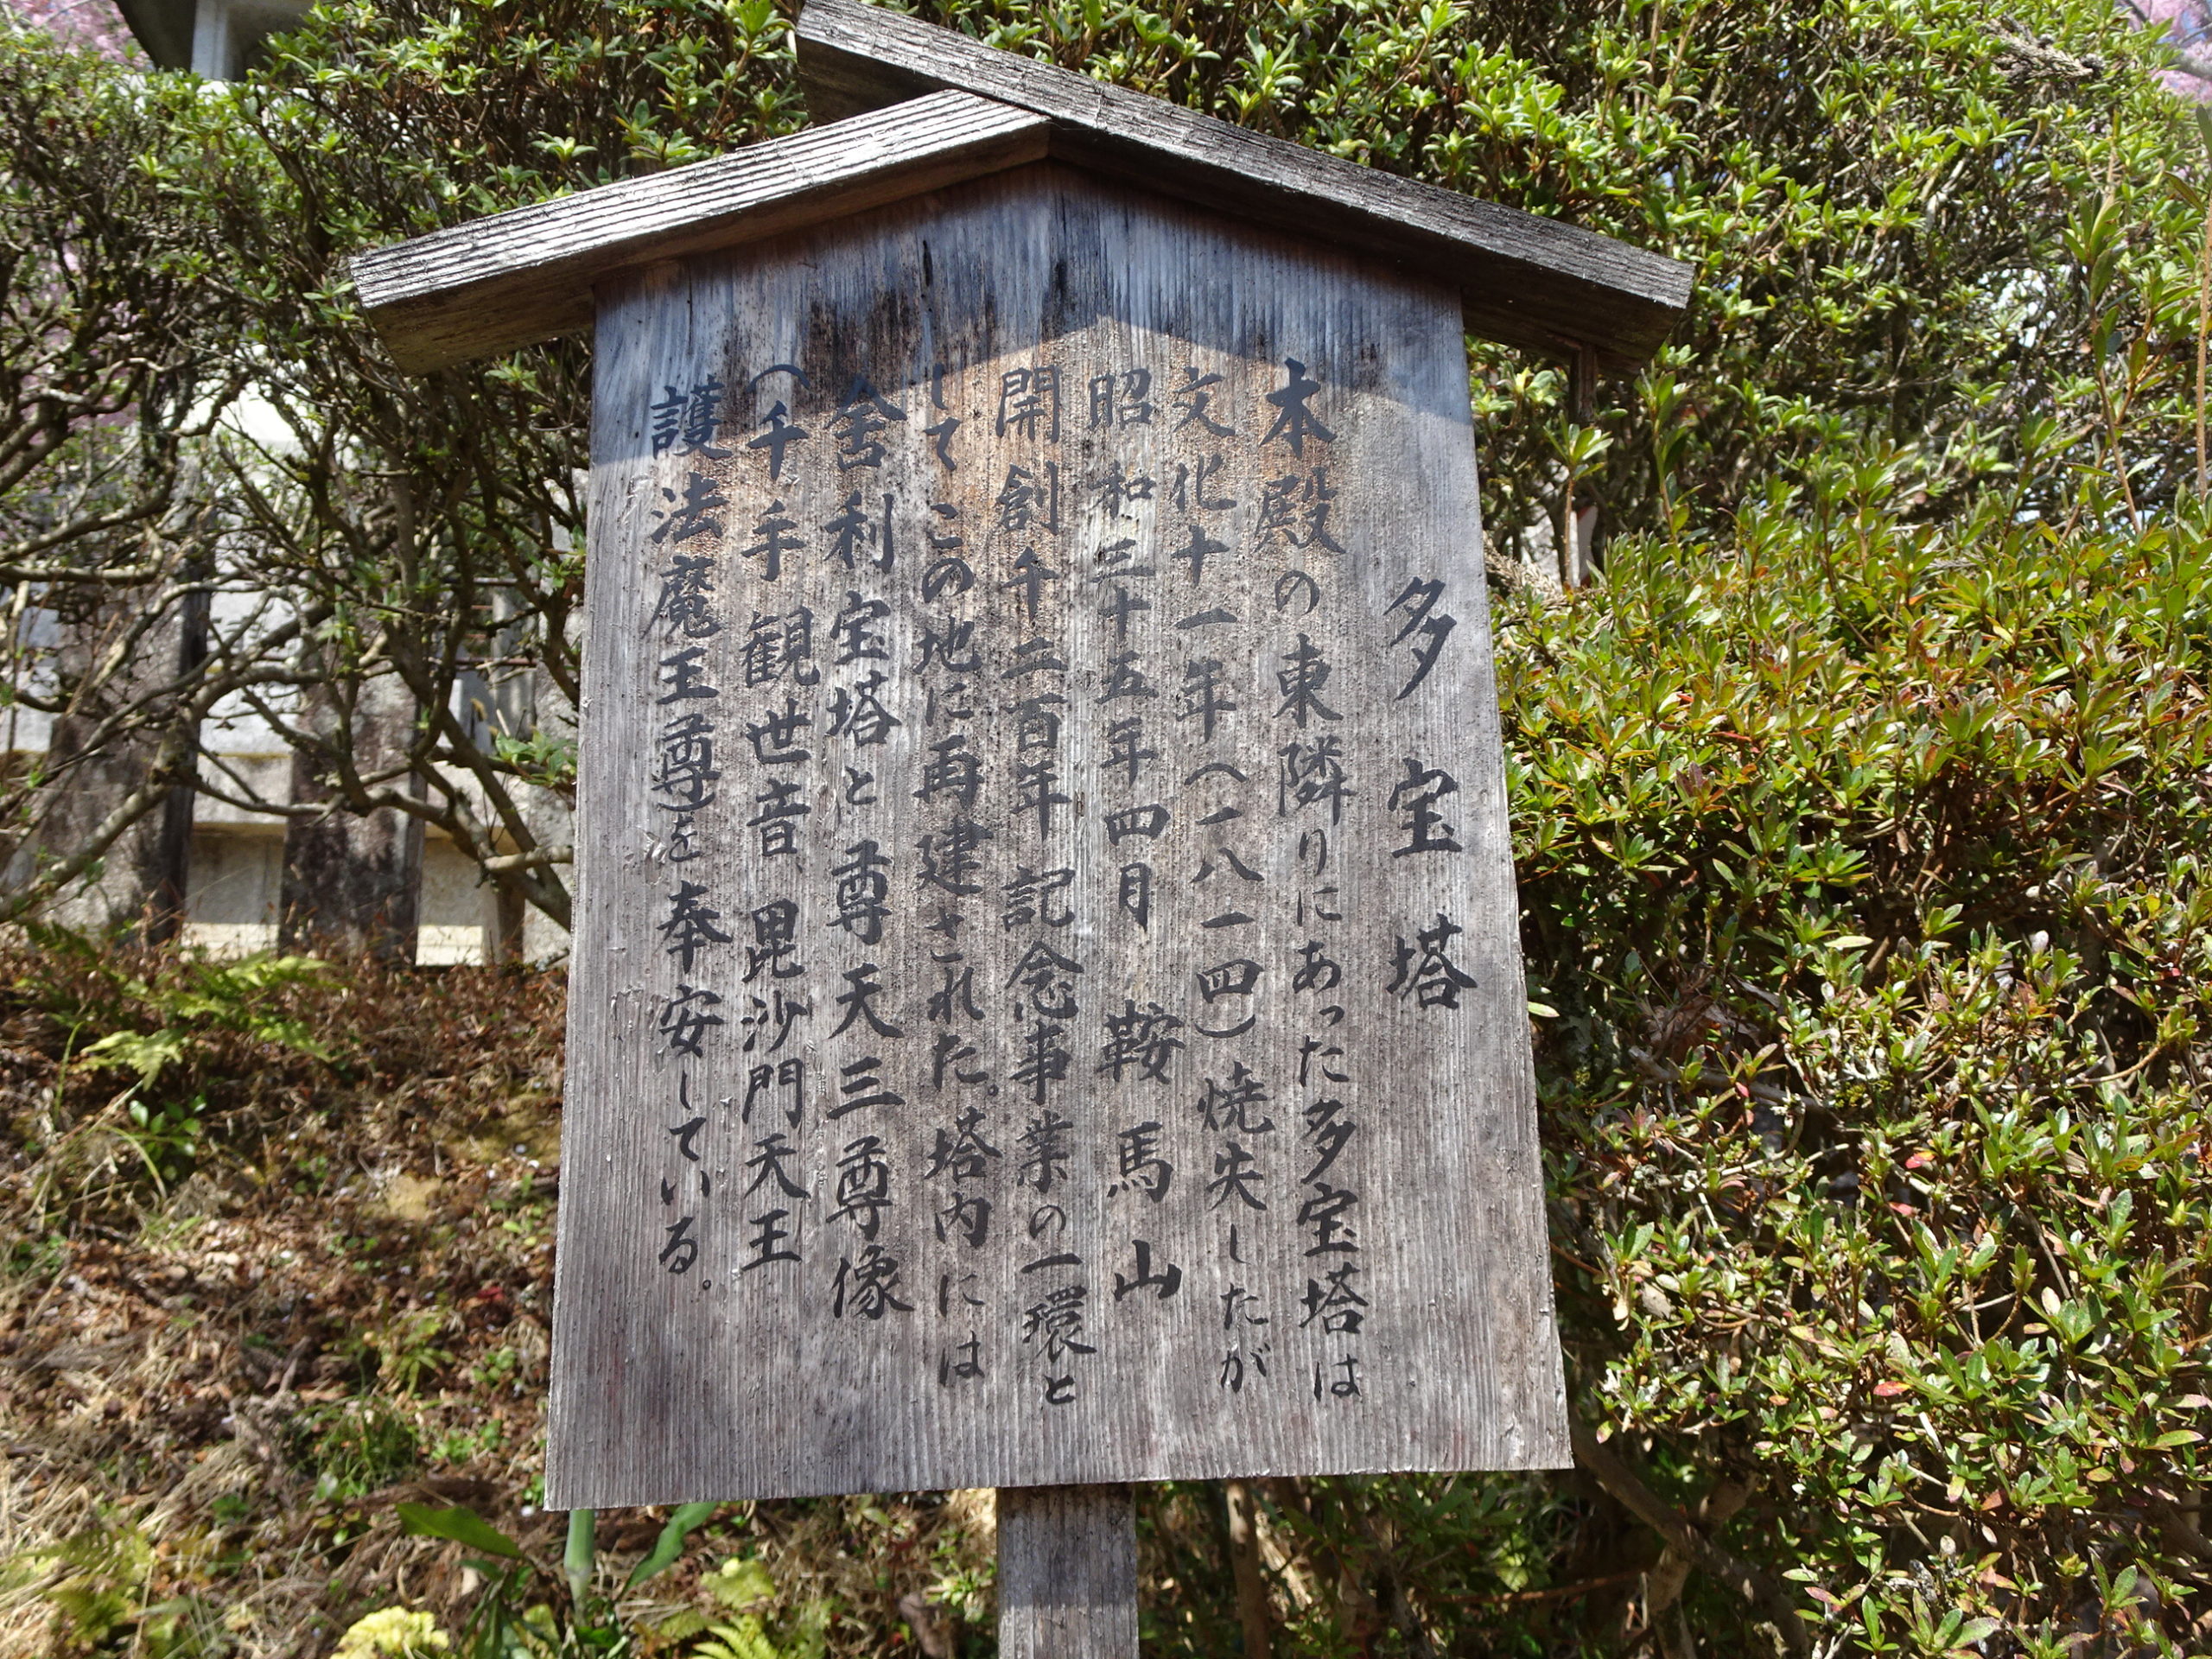 多宝塔
本殿の東隣りにあった多宝塔は
文化十一年(一八一四)焼失したが
昭和三十五年四月 鞍馬山
開創千二百年記念事業の一環と
してこの地に再建された。塔内には
舎利宝塔と尊天三尊像
(千手観世音、毘沙門天王
護法魔王尊)を奉安している。